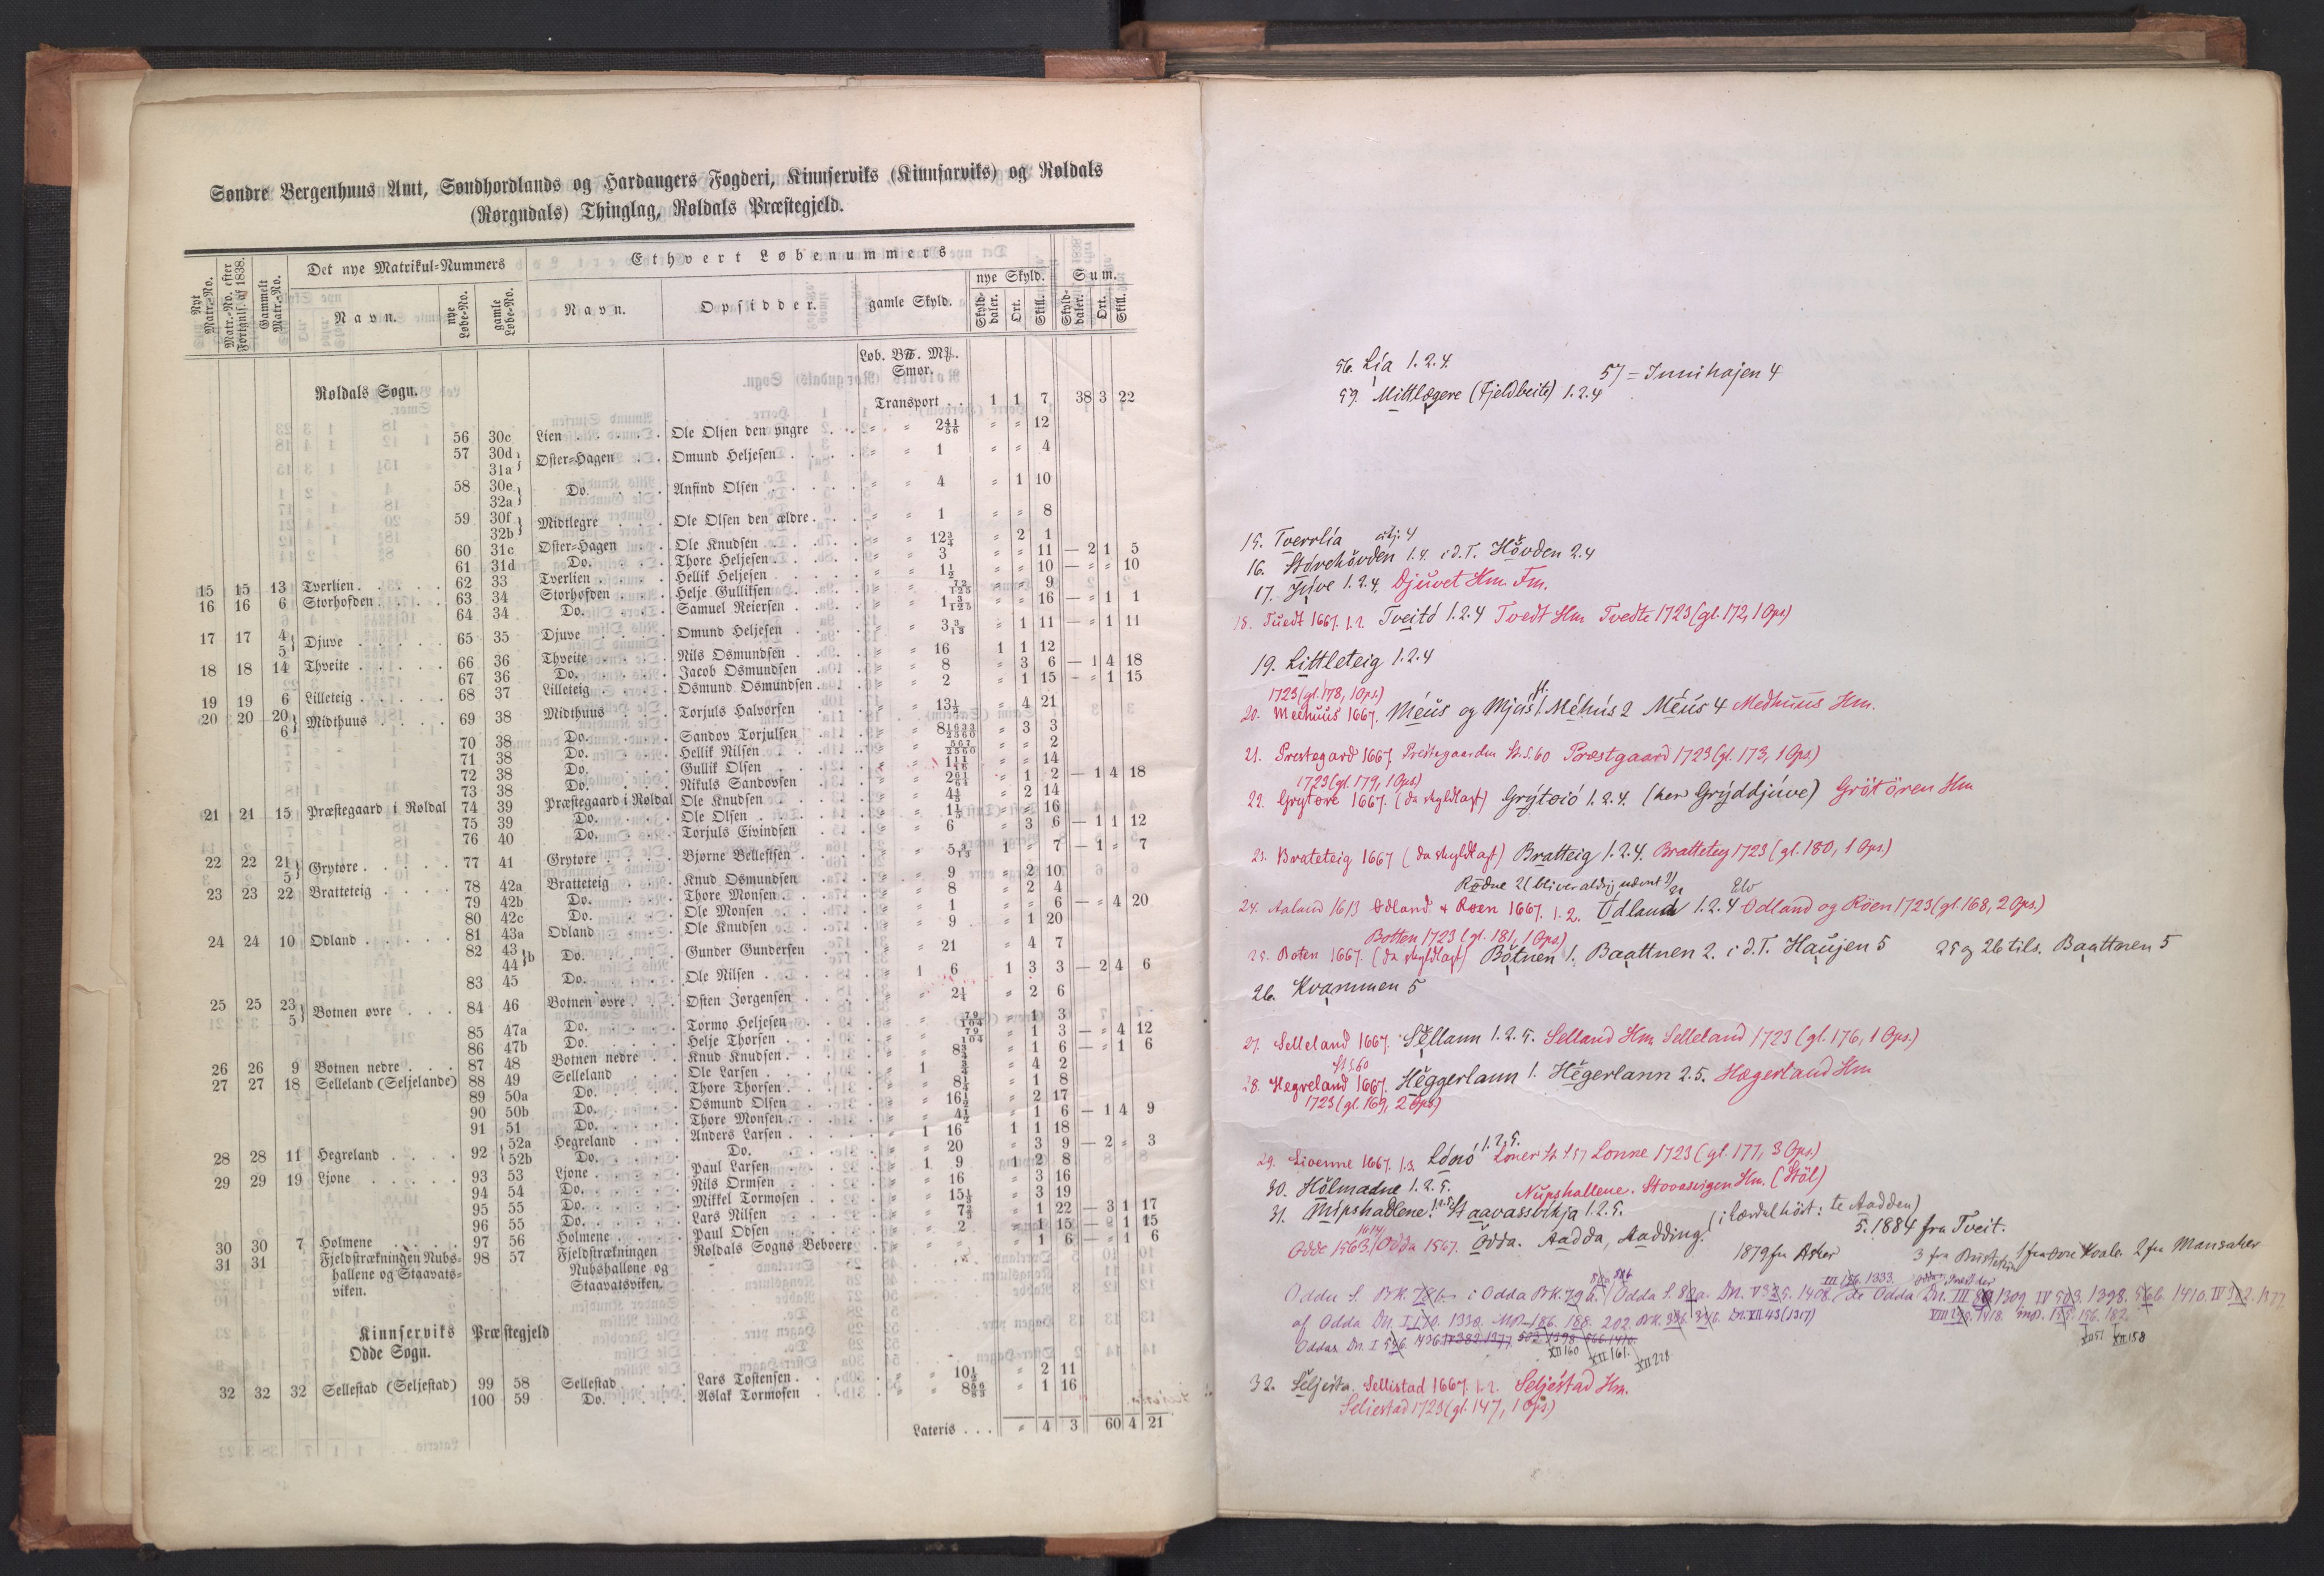 Søndre Bergenhuus Amt, Søndhordlands og Hardangers Fogderi, Kinnserviks (Kinnsarviks) og Roldals
(Rørgndals) Thinglag, Roldals Præstegjeld.
Nyt Matr.-No. Matr.-No. efter Fortgnls. af 1838. Gammelt Matr.-No. Det nye Matrikul-Nummers Ethvert Løbenummers
Navn. nye Løbe-No. gamle Løbe-No. Navn. Opsidder. gamle Skyld. nye Skyld. Sum.
Skylddaler. Ort. Skill. Skylddaler. Ort. Skill.
Løb. B℔. M℔.
Smør.
Roldals Sogn.
Transport . . 1 1 7 38 3 22
56 30c Lien Ole Olsen den yngre " " 2 41/56 " " 12
57 30d 31a Øster-Hagen Omund Heljesen " " 1 " " 4
58 30e 32a Do. Anfind Olsen " " 4 " 1 10
59 30f 32b Midtlegre Ole Olsen den ældre " " 1 " " 8
60 31c Øster-Hagen Ole Knudsen " " 12 3/4 " 2 1
61 31d Do. Thore Heljesen " " 3 " " 11 — 2 1 5
15 15 13 Tverlien 62 33 Tverlien Hellik Heljesen " " 1 1/2 " " 10 — " " 10
16 16 6 Storhofden 63 34 Storhofden Helje Gulliksen " " 72/125 " " 9
64 34 Do. Samuel Reiersen " " 1 3/125 " " 16 — " 1 1
17 17 4 5 Djuve 65 35 Djuve Omund Heljesen " " 3 3/13 " 1 11 — " 1 11
18 18 14 Thveite 66 36 Thveite Nils Osmundsen " " 16 1 1 12
67 36 Do. Jacob Osmundsen " " 8 " 3 6 — 1 4 18
19 19 6 Lilleteig 68 37 Lilleteig Osmund Osmundsen " " 2 " 1 15 — " 1 15
20 20 20 6 Midthuus 69 38 Midthuus Torjuls Halvorsen " " 13 1/2 " 4 21
70 38 Do. Sandov Torjulsen " " 8 1633/2560 " 3 3
71 38 Do. Hellik Nilsen " " 567/2560 " " 2
72 38 Do. Gullik Olsen " " 1 11/16 " " 14
73 38 Do. Nikuls Sandovsen " " 2 61/64 " 1 2 — 1 4 18
21 21 15 Præstegaard i Roldal 74 39 Præstegaard i Roldal Ole Knudsen " " 4 4/5 " 2 14
75 39 Do. Ole Olsen " " 1 1/5 " " 16
76 40 Do. Torjuls Eivindsen " " 6 " 3 6 — 1 1 12
22 22 21 5 Grytøre 77 41 Grytøre Bjørne Bellestsen " " 5 9/13 1 " 7 — 1 " 7
23 23 22 Bratteteig 78 42a Bratteteig Knud Osmundsen " " 9 " 2 10
79 42b Do. Thore Monsen " " 8 " 2 4
80 42c Do. Ole Monsen " " 1 " " 6 — " 4 20
24 24 10 Odland 81 43a Odland Ole Knudsen " " 9 " 1 20
82 43 44 b Do. Gunder Gundersen " " 21 " 4 7
83 45 Do. Ole Nilsen " 1 6 1 3 3 — 2 4 6
25 25 23 5 Botnen øvre 84 46 Botnen øvre Østen Jørgensen " " 2 1/4 " 2 6
85 47a Do. Tormo Heljesen " " 79/104 " 1 3
86 47b Do. Helje Thorsen " " 79/104 " 1 3 — " 4 12
26 26 9 Botnen nedre 87 48 Botnen nedre Knud Knudsen " " 8 3/4 " 1 6 — " 1 6
27 27 18 Selleland (Seljelande) 88 49 Selleland Ole Larsen " 1 3/4 " 4 2
89 50a Do. Thore Thorsen " " 8 1/4 " 1 8
90 50b Do. Osmund Olsen " " 16 1/2 " 2 17
91 51 Do. Thore Monsen " " 4 1/2 " 1 6 — 1 4 9
28 28 11 Hegreland 92 52a Hegreland Anders Larsen " 1 16 1 1 18
52b Do. Do. " " 20 " 3 9 — 2 " 3
29 29 19 Ljone 93 53 Ljone Paul Larsen " 1 9 1 2 8
94 54 Do. Nils Ormsen " " 16 " 3 16
95 55 Do. Mikkel Tormosen " " 15 1/3 " 3 19
96 55 Do. Lars Nilsen " " 7 2/3 " 1 22 — 3 1 17
30 30 7 Holmene 97 56 Holmene Paul Odsen " " 2 " 1 15 — " 1 15
31 31 Fjeldstrækningen Nubshallene og Staavatsviken. 98 57 Fjeldstrækningen Nubshallene og Staavatsviken. Roldals Sogns Beboere " " " " 1 6 — " 1 6
Kinnserviks Præstegjeld
Odde Sogn.
32 32 32 Sellestad (Seljestad) 99 58 Sellestad Lars Tostensen " " 10 1/2 " 2 11
100 59 Do. Aslak Tormosen " " 8 56/83 " 1 16
Lateris . . . " 4 3 60 4 21
56. Lía 1.2.4.
57 = Innihajen 4
59. Mittlægere (Fjeldbeite) 1.2.4
15. Tverrlía 4
16. Störehövden 1.4. i d.T. Hövden 2.4
17. Júve 1.2.4. Djuvet Hm. Fm.
18. Tuedt 1667. 1.2. Tveitó 1.2.4 Tvedt Hm Tvedte 1723 (gl. 172, 1 Ops)
19. Littleteig 1.2.4
1723 (gl. 178, 1 Ops.)
20. Meehuus 1667. Méus og Mjús 1. Méhús 2 Méús 4 Medhuus Hm.
21. Prestegard 1667 Prestegaarden St. S. 60 Præstgaard 1723 (gl. 173, 1 Ops)
1723 (gl. 179, 1 Ops)
22. Grytøre 1667. (da skyldlagt) Grýtoió 1.2.4. (her Grýddjúve) Grötören Hm
23. Brateteig 1667 (da skyldlagt) Bratteig 1.2.4. Bratteteig 1723 (gl. 180, 1 Ops.)
Rødne 2 (bliver aldrig nævnt)
24. Aaland 1613 Odland & Roen 1667. 1.2. Odland 1.2.4 Odland og Röen 1723 (gl. 168, 2 Ops.)
Botten 1723 (gl. 181, 1 Ops)
25. Boten 1667. (da skyldlagt) Bötnen 1. Baattnen 2. i d.T. Haujen 5 25 og 26 tils. Baattnen 5
26. Kvammen 5
27. Selleland 1667. Sellann 1.2.5. Selland Hm Selleland 1723 (gl. 176, 1 Ops.)
St. S. 60
28. Hegreland 1667. Heggerlann 1. Hegerlann 2.5. Hægerland Hm
1723 (gl. 169, 2 Ops)
29. Lioenne 1667. 1.3. Lónó 1.2.5. Loner St. S. 57 Lonne 1723 (gl. 177, 3 Ops)
30. Hölmadne 1.2.5. Nupshallene. Stovasvigen Hm. (Stöl)
31. Nupshadlene 1.2.5. Staavassvikja 1.2.5.
Odde 1563. 1614 Odda 1567. Odda. Aadda, Aadding. (i Lærdal hört: te Aadden)
5. 1884 fra Tveit.
1879 fra Asker 1 fra Øvre Kvale 2 fra Mansaker
Oddu S. BK. 78b. i Odda BK. 79b. Odda S. 80a. Dn. V 325. 1408.
af Odda Dn. I 170. 1330.
Oddar Dn. I 526. 1436.
XII 160 XII 161. XII 228
XII 158
32. Seljesta. Sellistad 1667. 1.2. Seljestad Hm.
Seliestad 1723 (gl. 147, 1 Ops.)